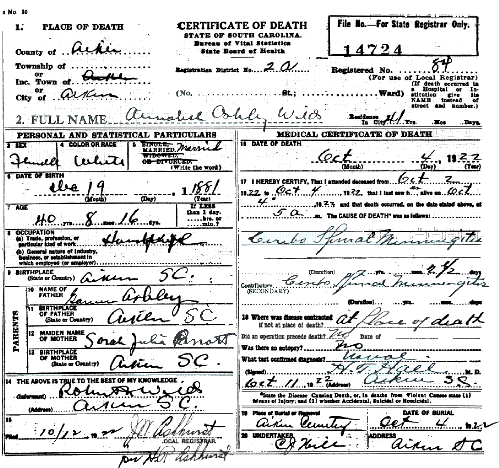 1. PLACE OF DEATH
County of Aiken
Township of
or
Inc. Town of Aiken
or
City of Aiken
CERTIFICATE OF DEATH
STATE OF SOUTH CAROLINA.
Bureau of Vital Statistics
State Board of Health
Registration District No. 2 a
(No. St.; Ward)
File No.—For State Registrar Only.
14724
Registered No. 84
(For use of Local Registrar)
(If death occurred in a Hospital or Institution give its NAME instead of street and number.)
2. FULL NAME Annabel Ashley Wilds
Residence In City 41 Yrs. Mos. Days.
PERSONAL AND STATISTICAL PARTICULARS
3 SEX
Female
4 COLOR OR RACE
White
5 SINGLE, MARRIED, WIDOWED, OR DIVORCED. Married
(Write the word)
6 DATE OF BIRTH
Dec 19, 1881
(Month) (Day) (Year)
7 AGE
40 yrs 8 mos 16 days
If LESS than 1 day, hrs. or min.?
8 OCCUPATION
(a) Trade, profession, or particular kind of work
(b) General nature of industry, business, or establishment in which employed (or employer)
9 BIRTHPLACE
(State or Country) Aiken SC.
PARENTS
10 NAME OF FATHER Ashley
11 BIRTHPLACE OF FATHER
(State or Country) Aiken SC
12 MAIDEN NAME OF MOTHER Sarah Julia
13 BIRTHPLACE OF MOTHER
(State or Country) Aiken SC
14 THE ABOVE IS TRUE TO THE BEST OF MY KNOWLEDGE
(Informant) Wilds
(Address) Aiken S.C.
15
10/12 22 J W Ashhurst
LOCAL REGISTRAR.
per Ashhurst
MEDICAL CERTIFICATE OF DEATH
16 DATE OF DEATH
Oct 4, 1922
(Month) (Day) (Year)
17 I HEREBY CERTIFY, That I attended deceased from Oct 2
1922 to Oct 4 1922, that I last saw alive on Oct
4" 1922 and that death occurred, on the date stated above, at
5 a m. The CAUSE OF DEATH* was as follows:
Cerebro Spinal Meningitis
(Duration) yrs. mos. 2 1/2 ds.
Contributory Cerebro Spinal Meningitis
(SECONDARY)
(Duration) yrs. mos. ds.
18 Where was disease contracted
if not at place of death? At place of death
Did an operation precede death? No Date of
Was there an autopsy? no
What test confirmed diagnosis?
(Signed) H. T. Hall
Oct 11 1922 Aiken SC
*State the Disease Causing Death, or, in deaths from Violent Causes state (1) Means of Injury; and (2) whether Accidental, Suicidal or Homicidal.
19 Place of Burial or Removal
Aiken County
DATE OF BURIAL
Oct 4 1922
20 UNDERTAKER
C Hill
ADDRESS
Aiken SC